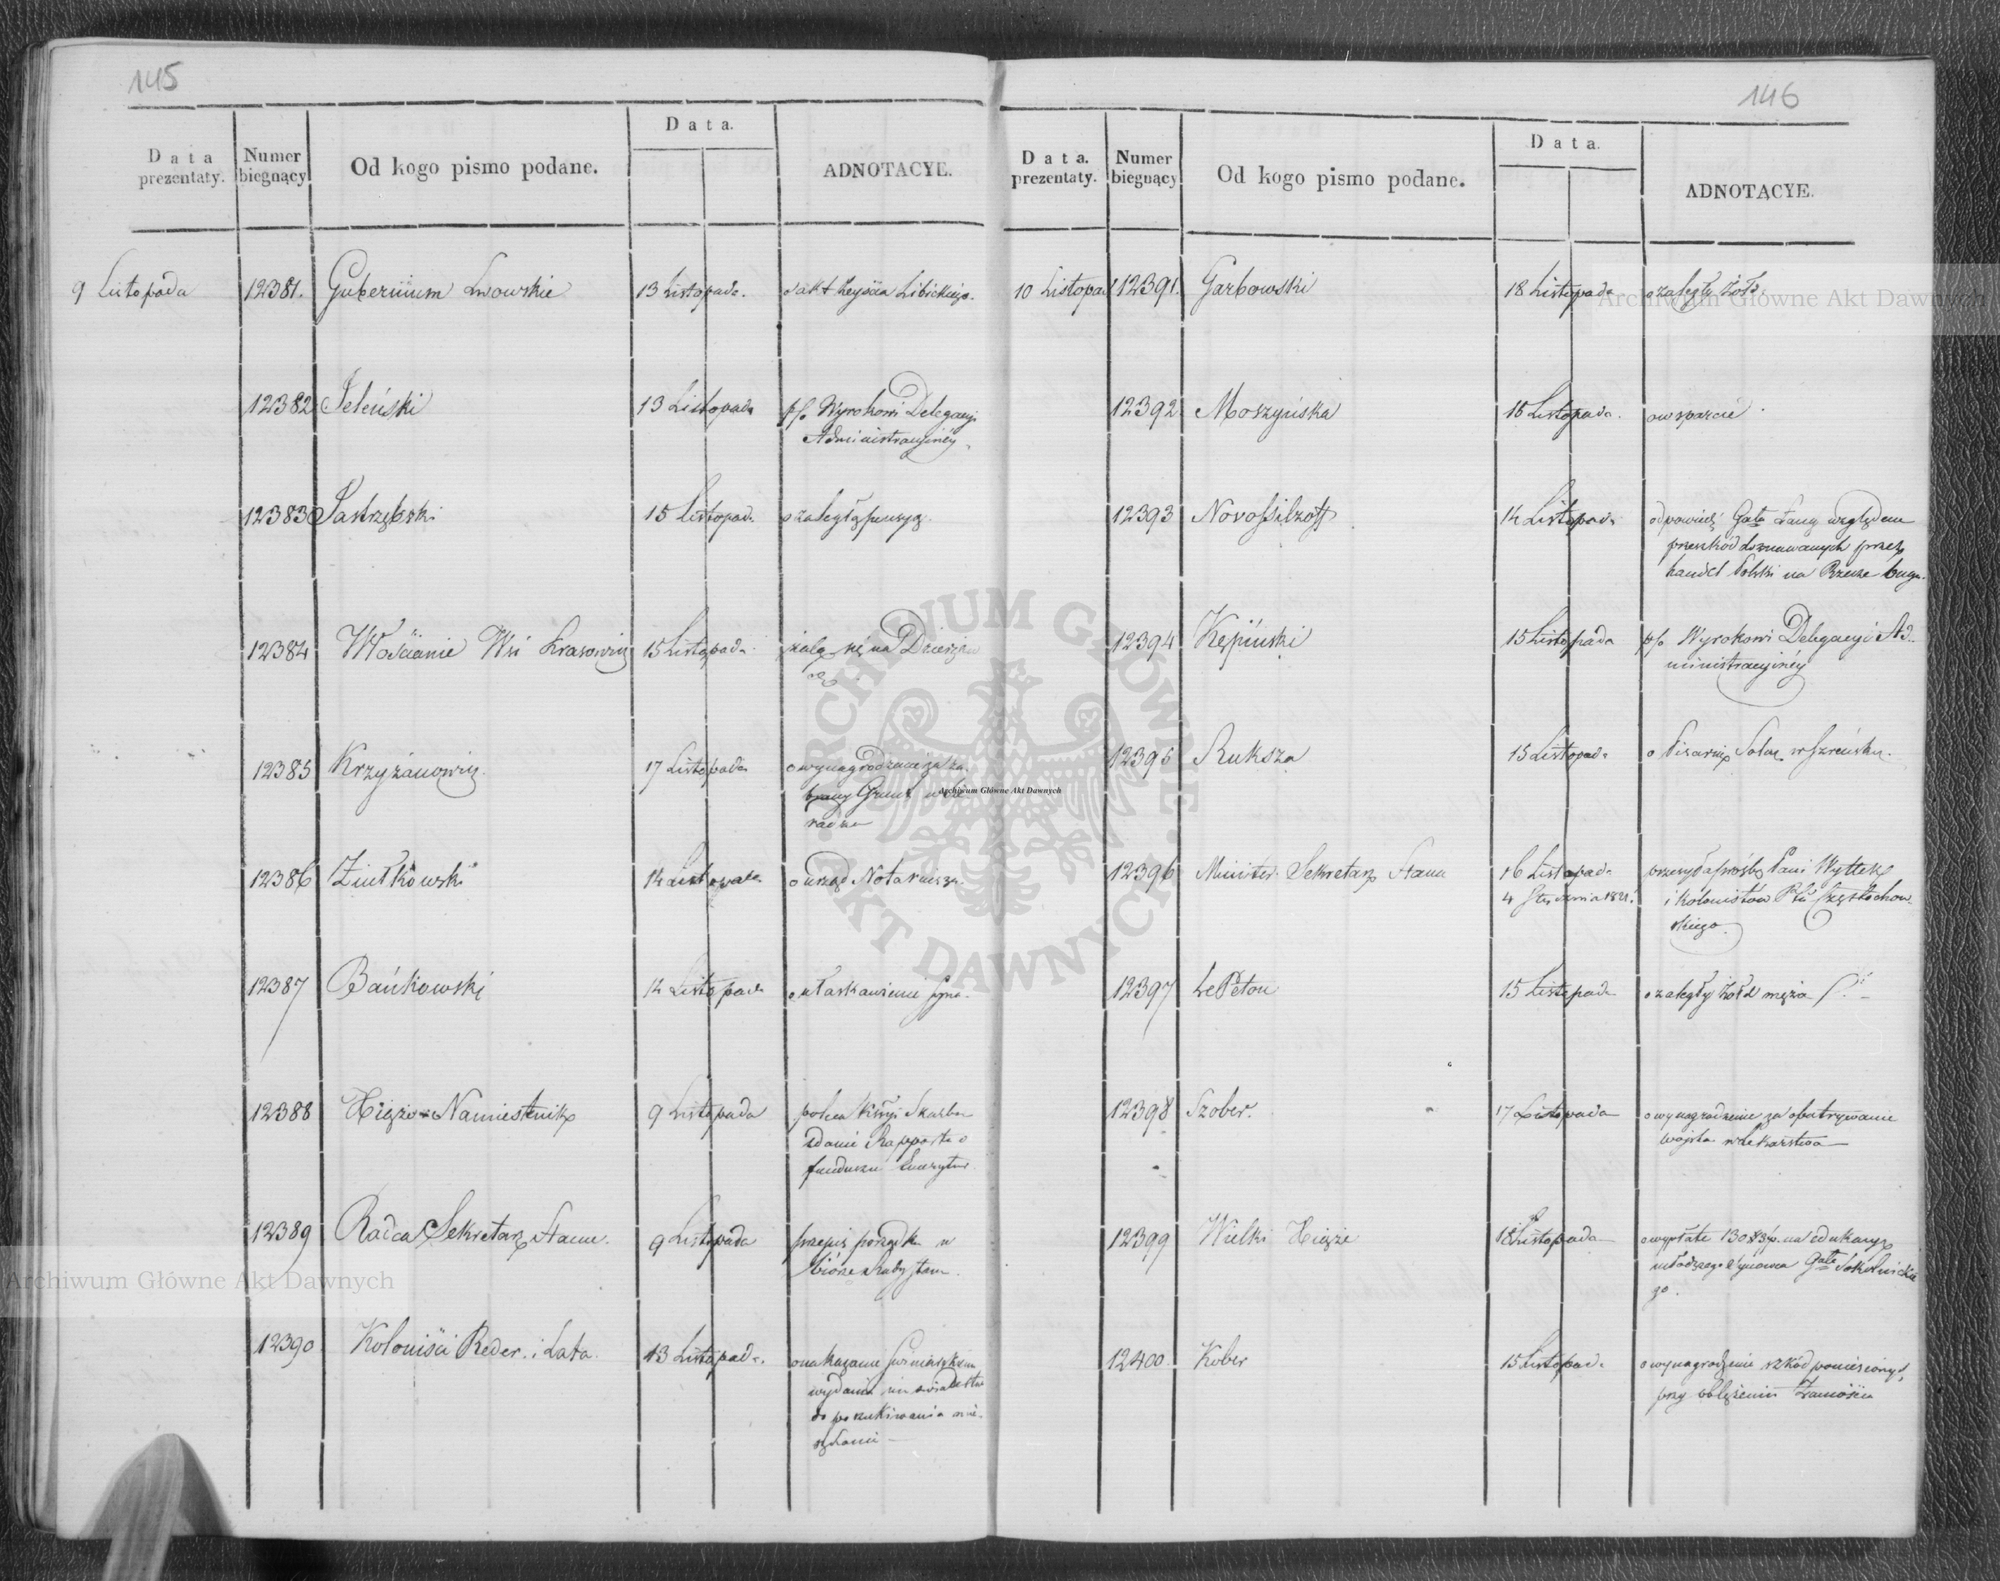 145
Data prezentaty.
Numer biegnący
Od kogo pismo podane.
Data.
ADNOTACYE.
9 Listopada 12381. Gubernium Lwowskie 13 Listopada. o akt zeyścia Libickiego.
12382 Jeleński 13 Listopada p/o Wyrokowi Delegacyi
Administracyinéy.
12383 Jastrzębski 15 Listopada o zaległą pensyą.
12384 Włościanie Wsi 15 Listopada żalą się na Dzierżaw
cę.
12385 Krzyżanowicz 17 Listopada o wynagrodzenie za za
brany Grunt
12386 Ziułkowski 14 Listopada o urząd Notaryusza
12387 Bańkowski 12 Listopada o ułaskawienie syna.
12388 Xiąże Namiestnik 9 Listopada poleca Kissyi Skarbu
zdanie Rapportu o
funduszu Emerytur.
12389 Radca Sekretarz Stanu. 9 Listopada przepis porządku w
biórze Rady Stanu.
12390 Koloniści Reder. i Lata. 13 Listopada. o nakazanie
wydania im świadectw
do poszukiwania
146
Data. prezentaty.
Numer biegnący
Od kogo pismo podane.
Data.
ADNOTACYE.
10 Listopa 12391. Garbowski 18 Listopada o zaległy żołd.
12392 Moszyńska 15 Listopada. o wsparcie.
12393 Novossilzoff 14 Listopada odpowiedź Gała względem
przeszkód doznawanych przez
handel Polski na Rzece Bugu.
12394 Kępiński 15 Listopada p/o Wyrokowi Delegacyi Ad-
ministracyinéy
12395 Ruksza 15 Listopada o Pisarza Solne w Szreńsku.
12396 Minister Sekretarz Stanu 16 Listopada przesyła prośbę Pani Wyttek
4 Stycznia 1821. i Kolonistów Pttu Częstochow-
skiego.
12397 Le Petou 15 Listopada o zaległy żołd męża
12398 Szober. 17 Listopada o wynagrodzenie za opatrywanie
wojska w Lekarstwa
12399 Wielki Xiąże 18 Listopada o wypłatę na edukacyą
młodszego Synowca Gała Sokolnickie
go.
12400 Kober 15 Listopada o wynagrodzenie szkód poniesionych
przy oblężeniu Zamościa
Archiwum Główne Akt Dawnych
Archiwum Główne Akt Dawnych
Archiwum Główne Akt Dawnych
ARCHIWUM GŁÓWNE · AKT DAWNYCH ·